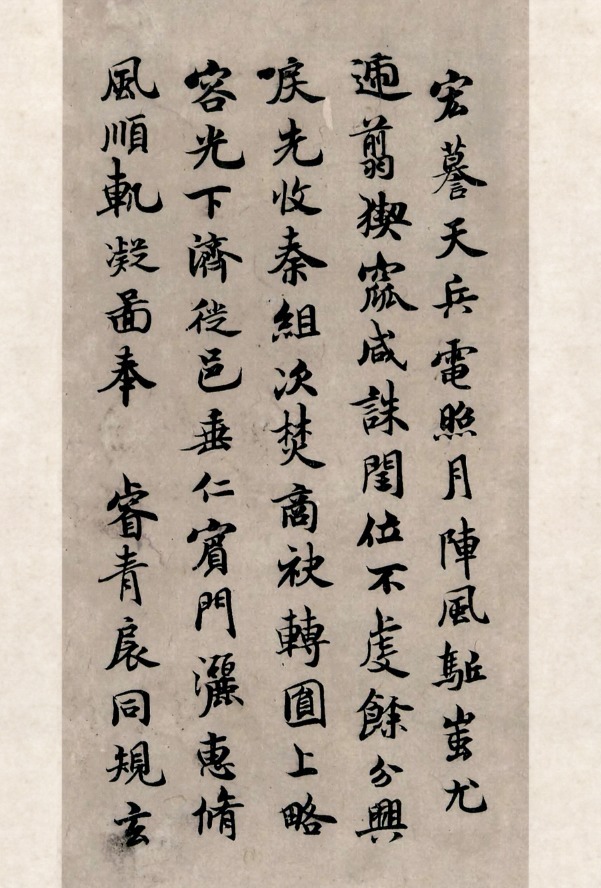 宏謩天兵電照月陣風駈蚩尤
遄翦猰窳咸誅閏位不虔餘分興
唳先收秦組次焚商袂轉圓上略
容光下濟從邑垂仁賓門灑惠脩
風順軌凝圖奉 睿青扆同規玄